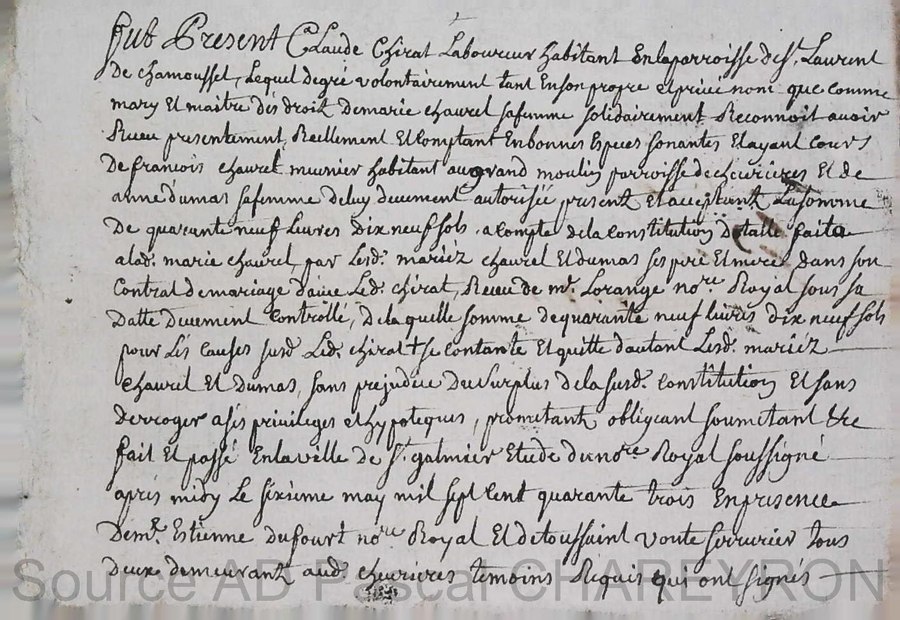 fut Present Claude Chirat Laboureur habitant En la parroisse de st. Laurent
De chamousset, Lequel de gré volontairement tant En son propre et privé nom que comme
mary Et maitre des droit de marie chavrel sa femme solidairement Reconnoit avoir
Receu presentement, Reellement Et Comptant En bonnes Espèces sonantes Et ayant Cours
De francois chavrel meunier habitant au grand moulin parroisse de chevrieres Et de
anne dumas sa femme de luy deuement autorisée present Et acceptant La somme
De quarante neuf Livres Dix neuf sols a compte de la Constitution Dotalle faite
a lad. marie chavrel, par Lesd. mariéz chavrel Et dumas ses pere Et mere Dans son
Contrat de mariage d'avec Led. chirat, Receu de mr. Lorange nore. Royal sous sa
Datte Duement Controllé, De la quelle somme de quarante neuf livres dix neuf sols
pour Les Causes susd. Led. chirat se contante Et quitte d'autant Lesd. mariéz
chavrel Et Dumas, sans prejudice Du surplus de la susd. Constitution Et sans
Derroger a ses privileges et hypoteques, prometant obligeant soumetant &c
fait Et passé En la ville de st. galmier Etude du nore Royal soussigné
après midy Le sixieme may mil sept Cent quarante trois En presence
De mr. Estienne Dufour nore Royal Et de toussaint vonte serrurier tous
deux demeurant aud. chevrieres temoins Requis qui ont signés
Source AD P. Pascal CHAREYRON